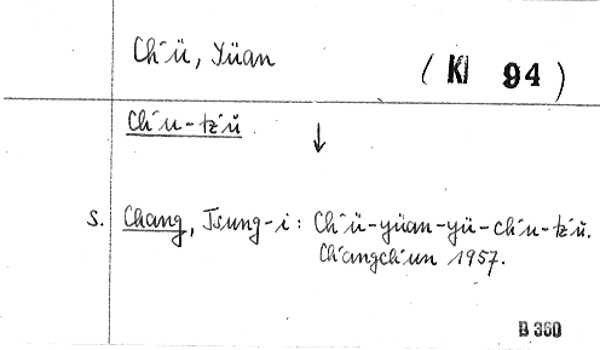 Ch'ü, Yüan
( Kl 94 )
Ch'u-tz'ŭ ↓
s. Chang, Tsung-i: Ch'ü-yüan-yü-ch'u-tz'ŭ.
Ch'angch'un 1957.
B 360